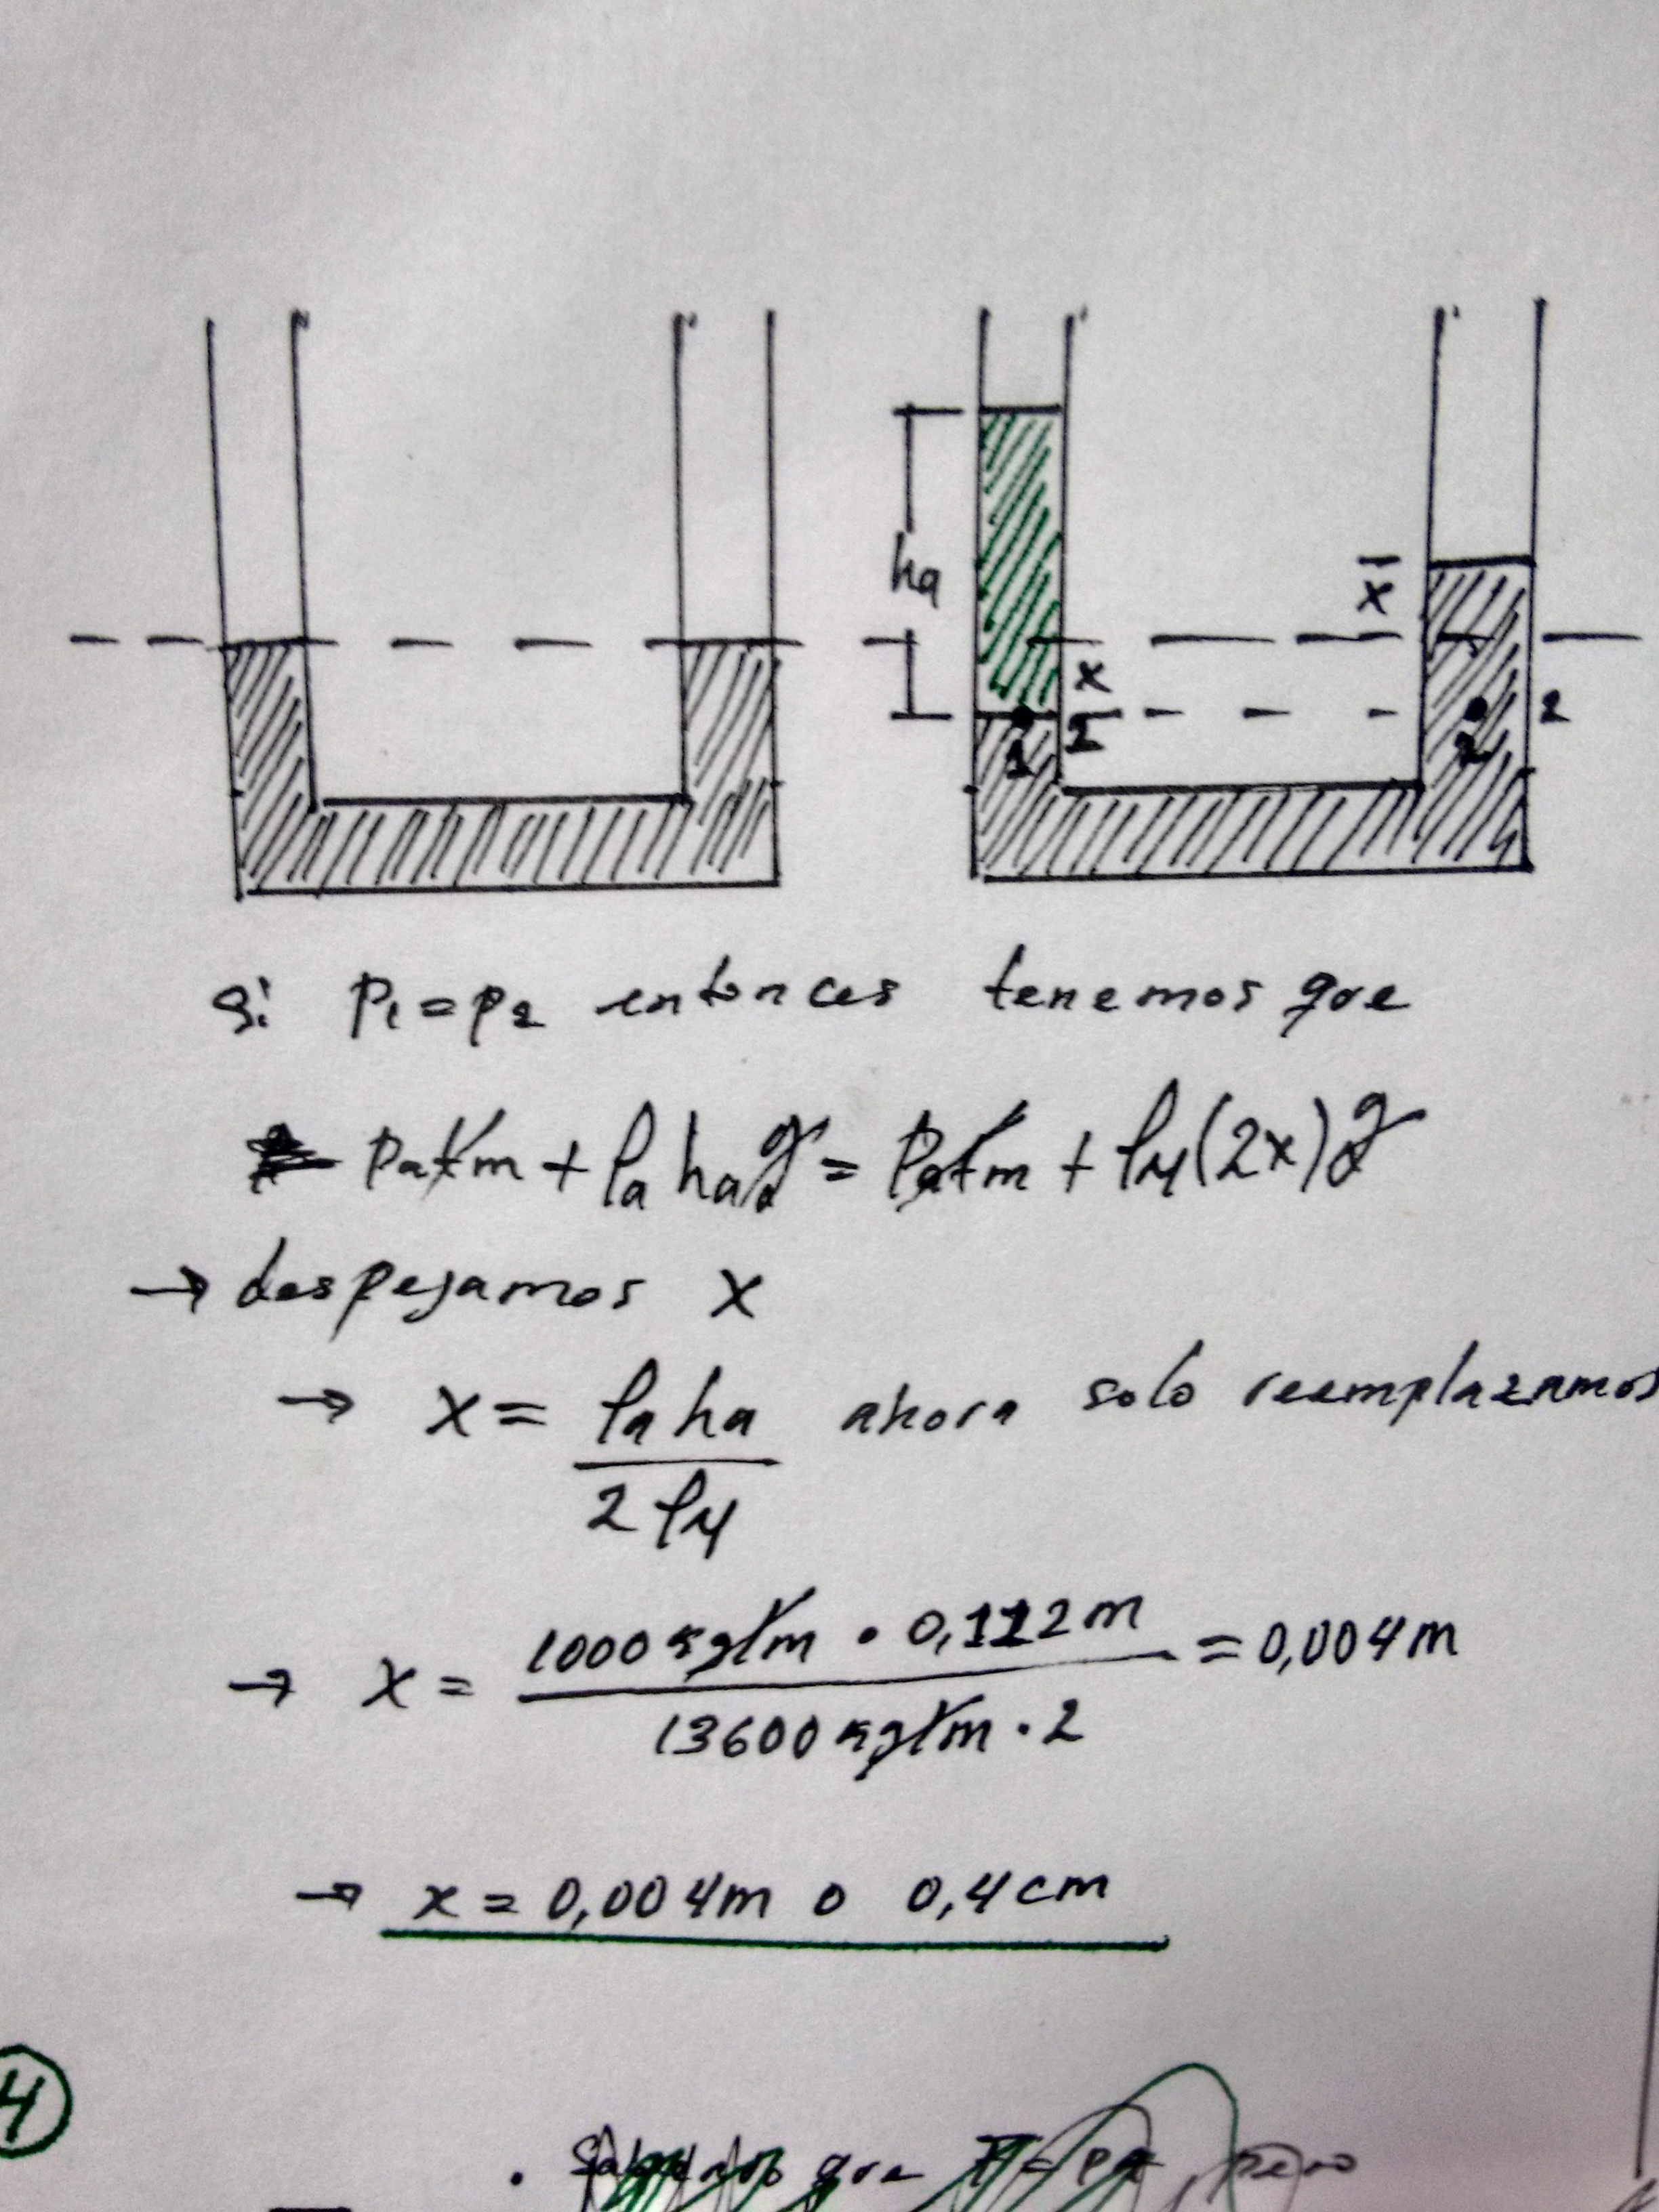 ha
x
x
1
2
2
2
Si P1=P2 entonces tenemos que
Patm + ρa ha g = Patm + ρM (2x) g
→ despejamos x
→ x = ρa ha / 2 ρM ahora solo reemplazamos
→ x = 1000 kg/m · 0,112 m / 13600 kg/m · 2 = 0,004 m
→ x = 0,004 m o 0,4 cm
4
que